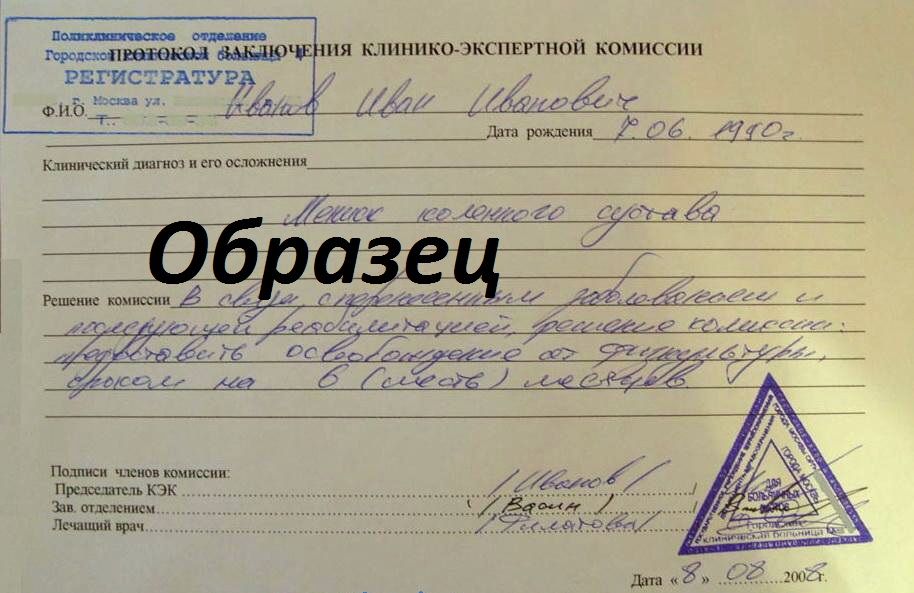 Поликлиническое отделение
Городской больницы
ПРОТОКОЛ ЗАКЛЮЧЕНИЯ КЛИНИКО-ЭКСПЕРТНОЙ КОМИССИИ
РЕГИСТРАТУРА
г. Москва ул.
Т.
Ф.И.О. Иванов Иван Иванович
Дата рождения 7.06. 1990г.
Клинический диагноз и его осложнения
Мениск коленного сустава
Образец
Решение комиссии В связи с перенесенным заболеванием и
последующей реабилитацией, решение комиссии:
предоставить освобождение от физкультуры,
сроком на 6 (шесть) месяцев.
Подписи членов комиссии:
Председатель КЭК / Иванов /
Зав. отделением ( Васин )
Лечащий врач / Филатова /
ДЛЯ
БОЛЬНИЧНЫХ
ЛИСТОВ
Городская
клиническая больница
ГОРОДА МОСКВЫ
Дата «8» 08 2008г.